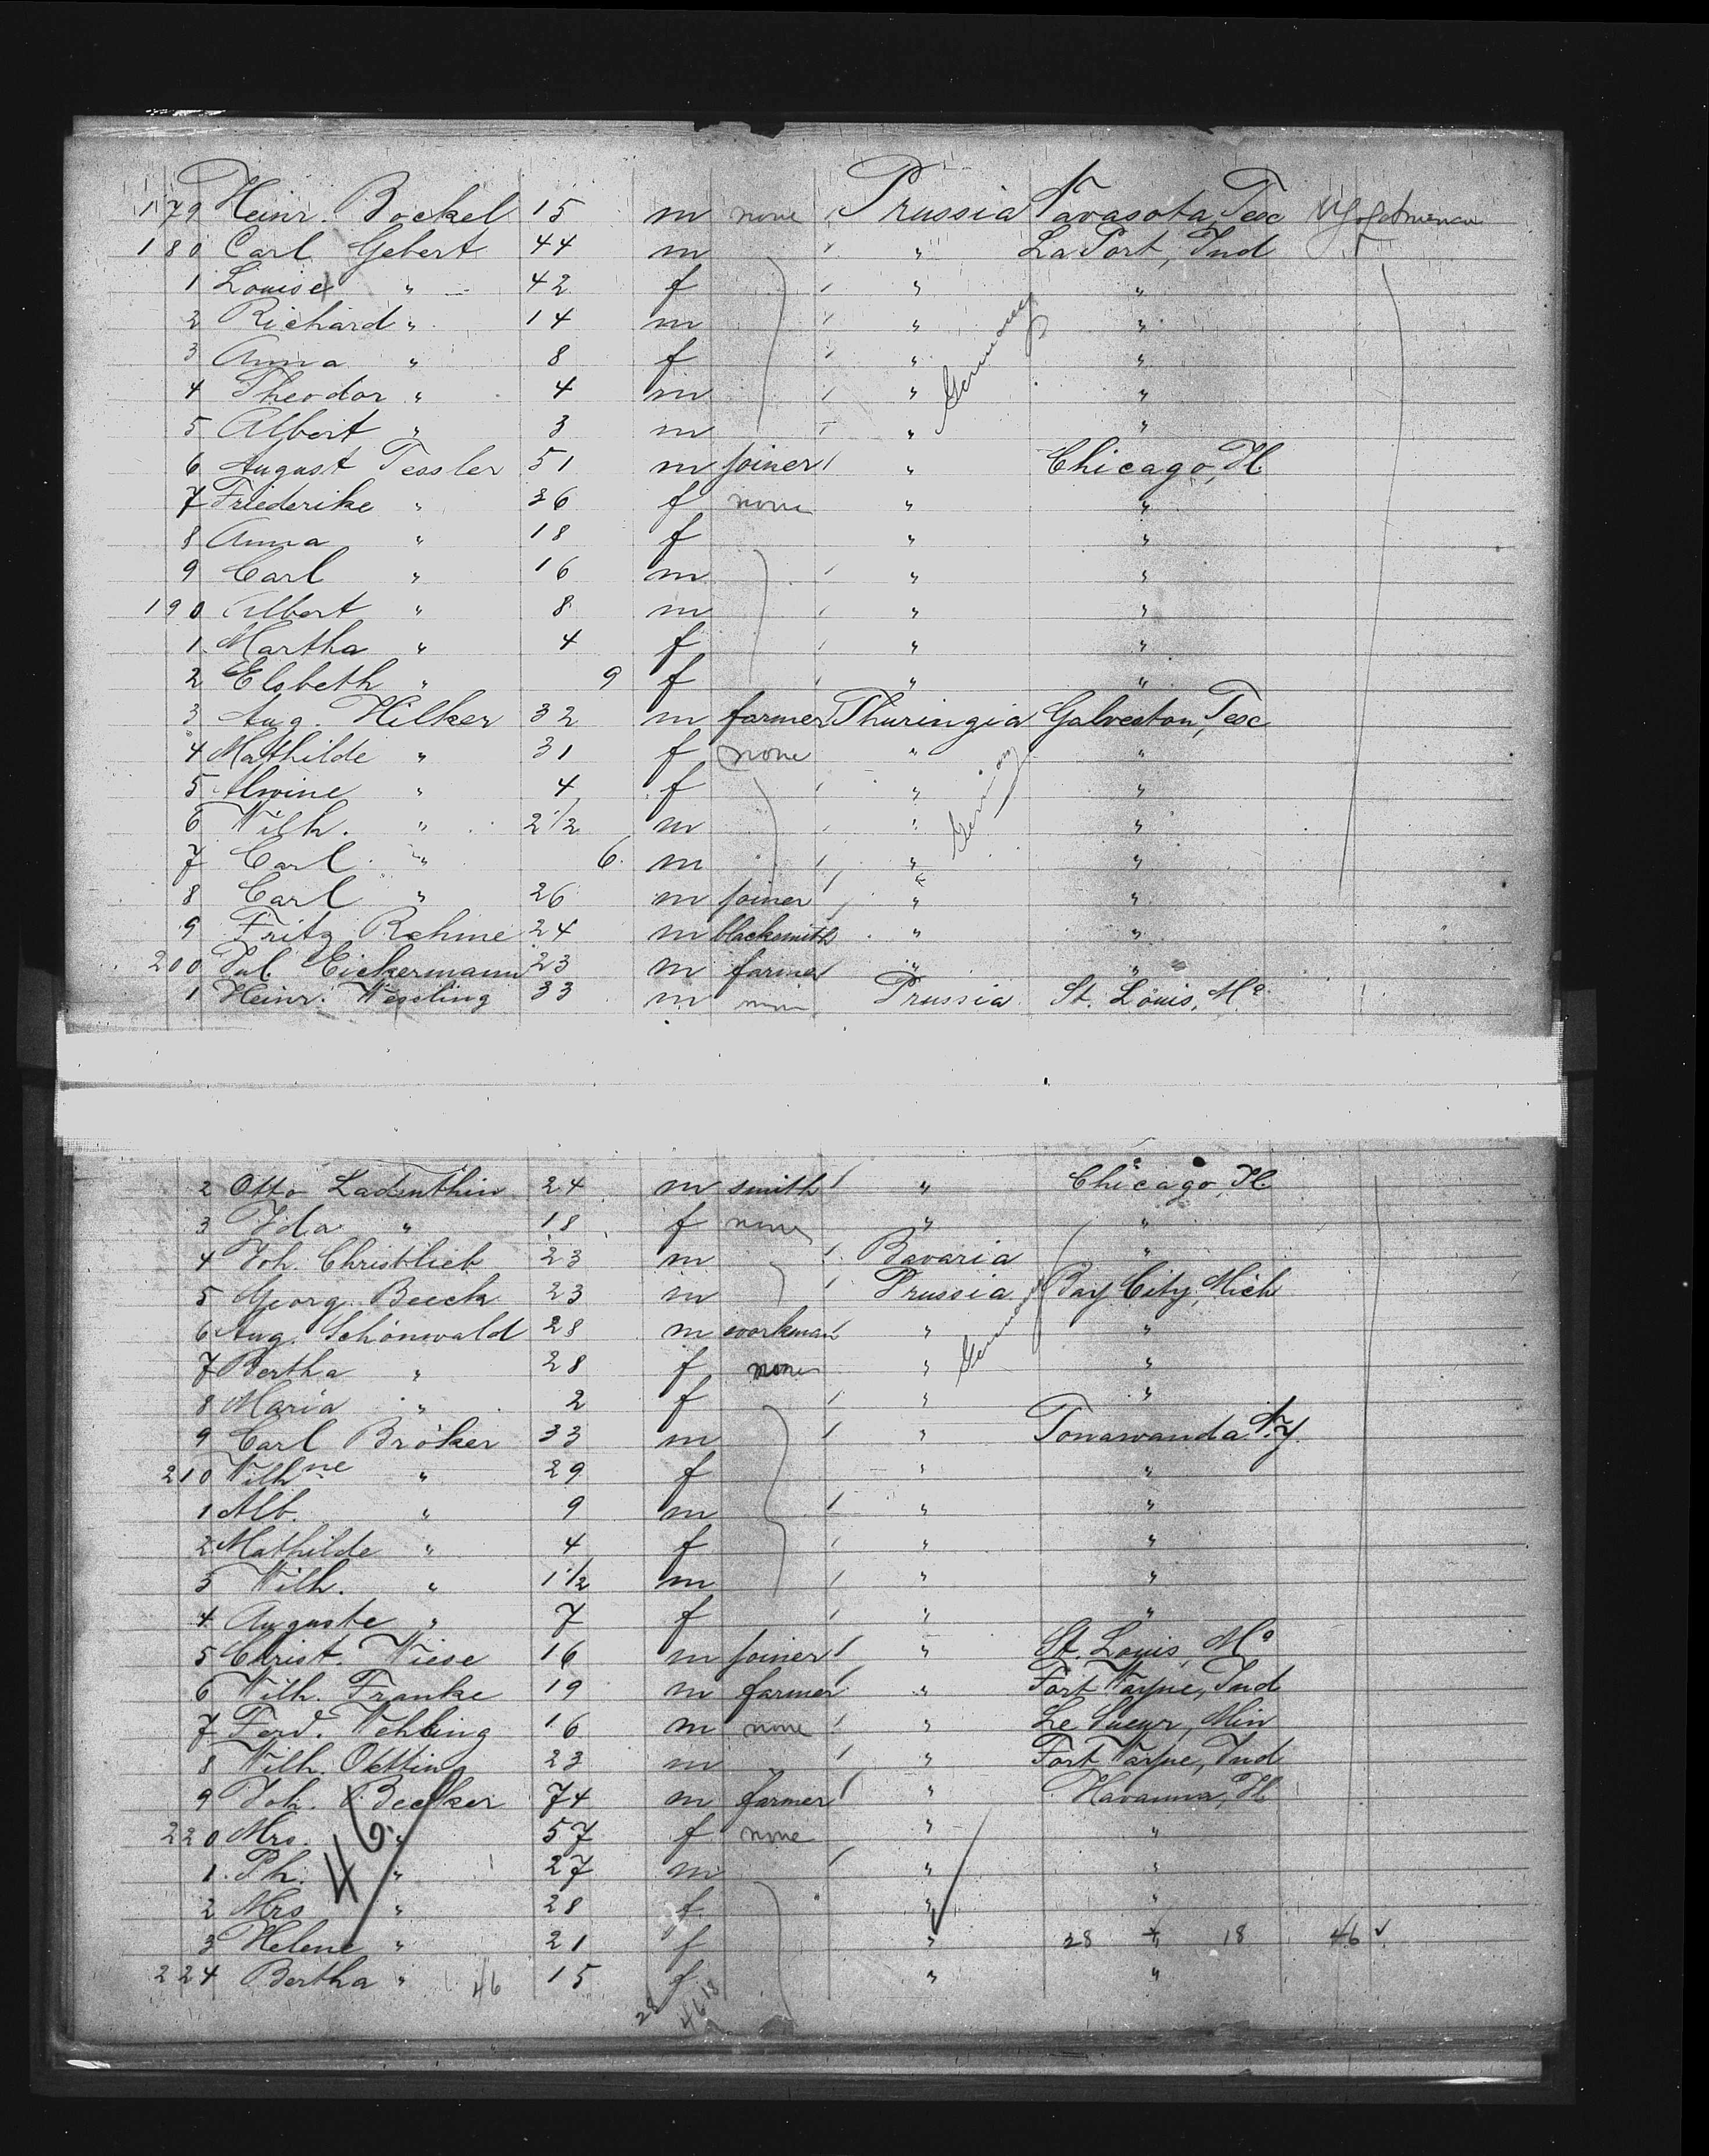 179 Heinr. Bockel 15 m none Prussia Navasota, Tex
180 Carl Gebert 44 m " La Port, Ind
1 Louise " 42 f " "
2 Richard " 14 m " "
3 Anna " 8 f " "
4 Theodor " 4 m " "
5 Albert " 3 m " "
Germany
6 August Tessler 51 m joiner " Chicago, Il.
7 Friederike " 36 f none " "
8 Anna " 18 f " "
9 Carl " 16 m " "
190 Albert " 8 m " "
1 Martha " 4 f " "
2 Elsbeth " 9 f " "
3 Aug. Hilker 32 m farmer Thuringia Galveston, Tex
4 Mathilde " 31 f none " "
5 Alwine " 4 f " "
6 Wilh. " 2 1/2 m " "
7 Carl " 6 m " "
Germany
8 Carl " 26 m joiner " "
9 Fritz Rehme 24 m blacksmith " "
200 Jul. Eickermann 23 m farmer " "
1 Heinr. Wessling 33 m Prussia St. Louis, Mo
2 Otto Ladenthin 24 m smith " Chicago, Il.
3 Ida " 18 f none " "
4 Joh. Christlieb 23 m Bavaria "
5 Georg Beeck 23 m Prussia Bay City, Mich
6 Aug. Schönwald 28 m workman " "
Germany
7 Bertha " 28 f none " "
8 Maria " 2 f " "
9 Carl Bröker 33 m " Tonawanda N.Y.
210 Wilhne " 29 f " "
1 Alb. " 9 m " "
2 Mathilde " 4 f " "
3 Wilh. " 1 1/2 m " "
4 Auguste " 7 f " "
5 Christ. Wiese 16 m joiner " St. Louis, Mo
6 Wilh. Franke 19 m farmer " Fort Wayne, Ind
7 Ferd. Wehling 16 m none " Le Sueur, Min
8 Wilh. Oetting 23 m " Fort Wayne, Ind
9 Joh. Becker 74 m farmer " Havanna, Il
220 Mrs. " 57 f none " "
1 Ph. " 27 m " "
46
2 Mrs " 28 f " "
3 Helene " 21 f " " 28 18 46
224 Bertha " 46 15 f " "
28 18
46